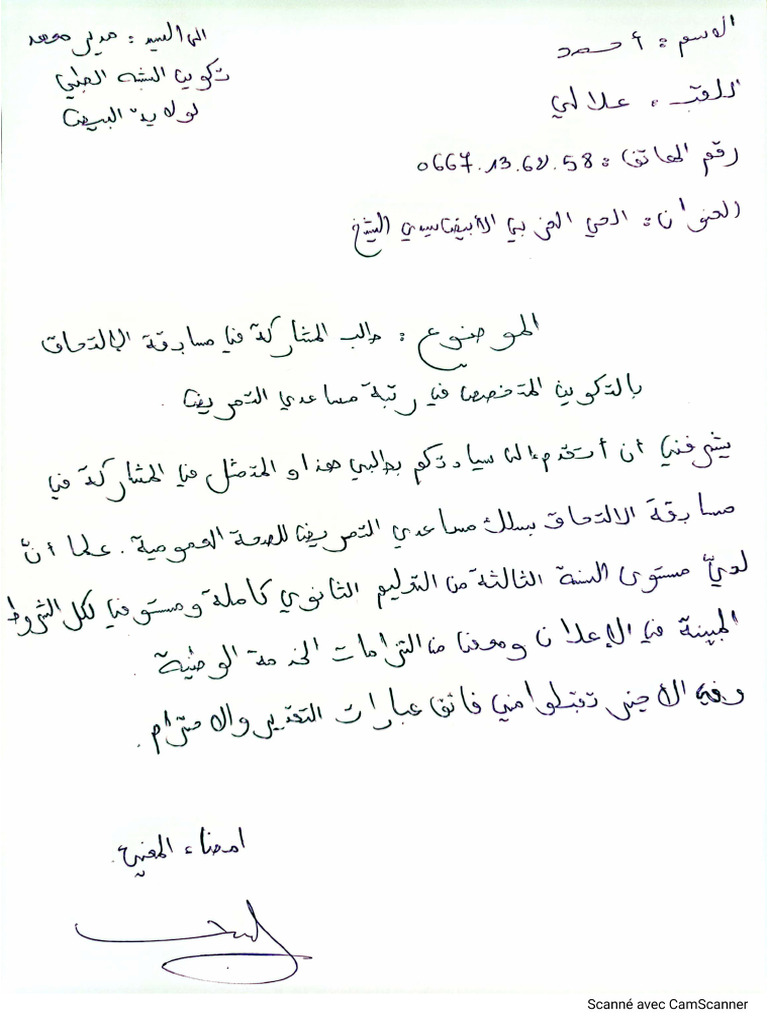 الاسم : أحمد
اللقب : علالي
رقم الهاتف : 0667.13.60.58
العنوان : الحي الغربي الأبيض سيدي الشيخ
الى السيد : مدير معهد
تكوين الشبه الطبي
لولاية البيض
الموضوع : طلب المشاركة في مسابقة الإلتحاق
بالتكوين المتخصص في رتبة مساعدي التمريض .
يشرفني أن أتقدم إلى سيادتكم بطلبي هذا و المتمثل في المشاركة في
مسابقة الالتحاق بسلك مساعدي التمريض للصحة العمومية . علما أنّ
لديّ مستوى السنة الثالثة من التعليم الثانوي كاملة و مستوفي لكل الشروط
المبينة في الإعلان و معفى من التزامات الخدمة الوطنية .
وفي الأخير تقبلوا مني فائق عبارات التقدير والاحترام .
امضاء المعني
Scanné avec CamScanner